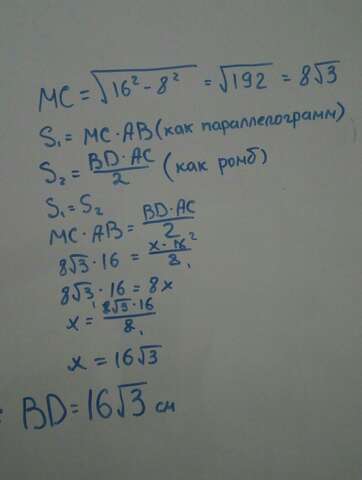 MC = √16² - 8² = √192 = 8√3
S₁ = MC · AB (как параллелограмм)
S₂ = BD · AC / 2 (как ромб)
S₁ = S₂
MC · AB = BD · AC / 2
8√3 · 16 = x · 16 / 2
8√3 · 16 = 8x
x = 8√3 · 16 / 8
x = 16√3
BD = 16√3 см